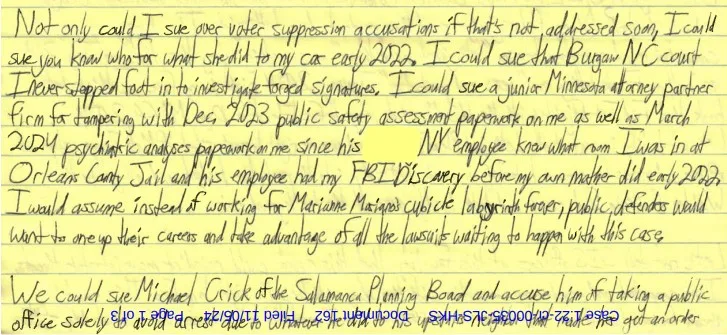 Not only could I sue over voter suppression accusations if that's not addressed soon, I could
sue you know who for what she did to my car early 2022. I could sue that Burgaw NC court
I never stepped foot in to investigate forged signatures. I could sue a junior Minnesota attorney partner
firm for tampering with Dec. 2023 public safety assessment paperwork on me as well as March
2024 psychiatric analyses paperwork on me since his NY employee knew what room I was in at
Orleans County Jail and his employee had my FBI Discovery before my own mother did early 2022.
I would assume instead of working for Marianne Mariano's cubicle labyrinth forever, public defenders would
want to one up their careers and take advantage of all the lawsuits waiting to happen with this case.
We could sue Michael Crick of the Salamanca Planning Board and accuse him of taking a public
office solely to avoid arrest due to whatever he did to his upstairs neighbor that made me got an order
Case 1:22-cr-00035-JLS-HKS Document 162 Filed 11/06/24 Page 1 of 3